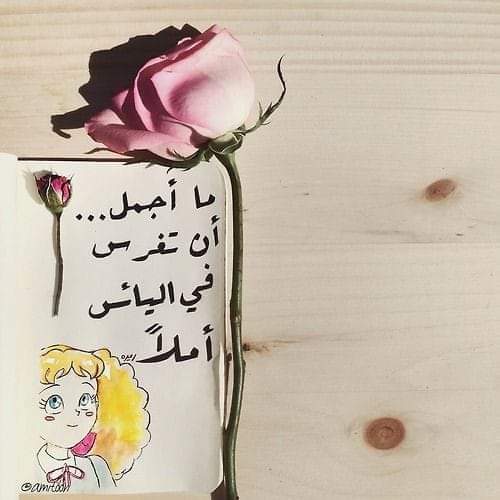 ما أجمل...
أن تغرس
في اليائس
أملاً.
@amitoon